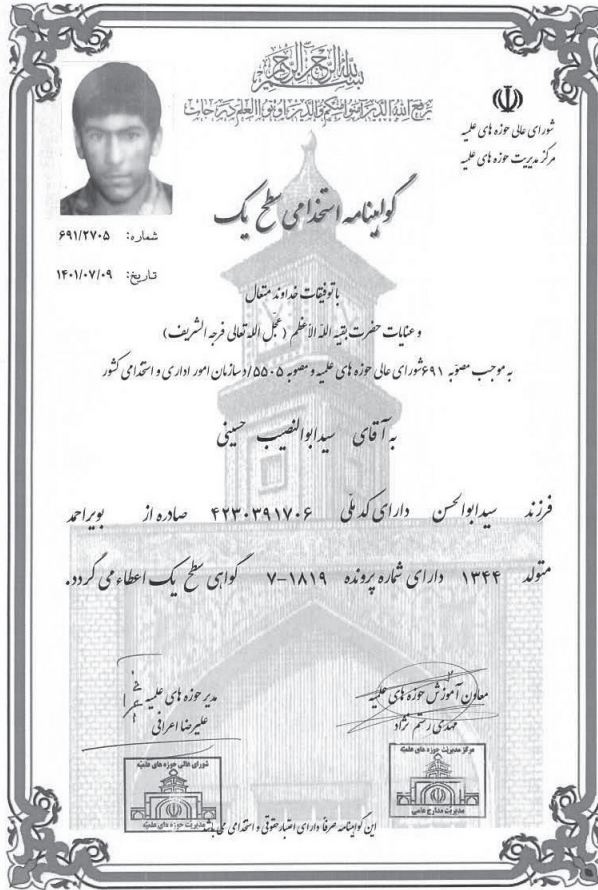 بسم الله الرحمن الرحیم
یرفع الله الذین آمنوا منکم والذین اوتوا العلم درجات
شورای عالی حوزه های علمیه
مرکز مدیریت حوزه های علمیه
گواهینامه استخدامی سطح یک
شماره: ۶۹۱/۲۷۰۵
تاریخ: ۱۴۰۱/۰۷/۰۹
با توفیقات خداوند متعال
و عنایات حضرت بقیة الله الأعظم (عجل الله تعالی فرجه الشریف)
به موجب مصوبه ۶۹۱ شورای عالی حوزه های علمیه و مصوبه ۵۵۰۵/د سازمان امور اداری و استخدامی کشور
به آقای سیدابوالنصیب حسینی
فرزند سیدابوالحسن دارای کد ملی ۴۲۳۰۳۹۱۷۰۶ صادره از بویراحمد
متولد ۱۳۴۴ دارای شماره پرونده ۱۸۱۹-۷ گواهی سطح یک اعطاء می گردد.
معاون آموزش حوزه های علمیه
مهدی رستم نژاد
مدیر حوزه های علمیه
علیرضا اعرافی
مرکز مدیریت حوزه های علمیه
مدیریت مدارج علمی
شورای عالی حوزه های علمیه
مدیریت حوزه های علمیه
این گواهینامه صرفاً دارای اعتبار حقوقی و استخدامی می باشد